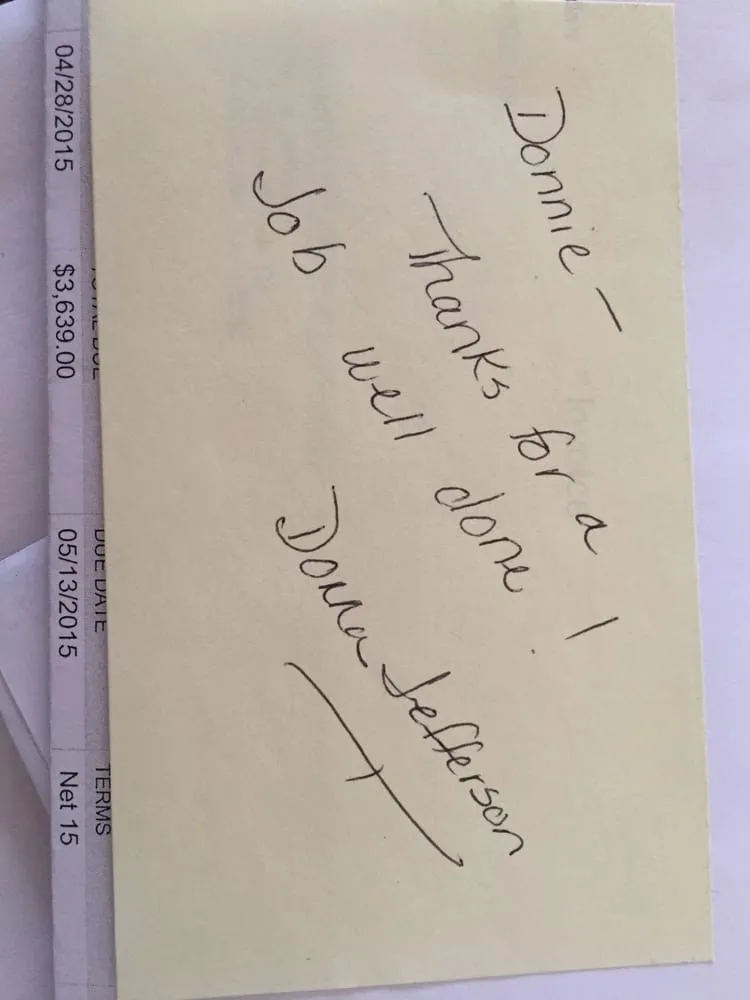 Donnie –
Thanks for a
Job well done!
Donna Jefferson
TOTAL DUE DUE DATE TERMS
04/28/2015 $3,639.00 05/13/2015 Net 15